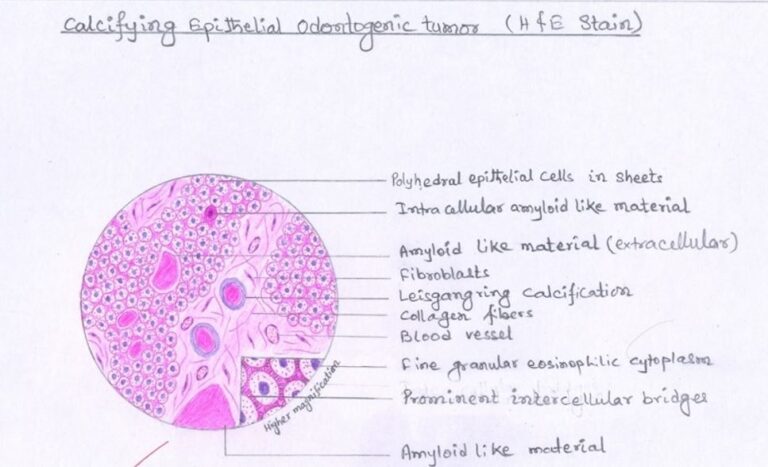 Calcifying Epithelial Odontogenic tumor (H & E Stain)
Polyhedral epithelial cells in sheets
Intra cellular amyloid like material
Amyloid like material (extracellular)
Fibroblasts
Leisgang ring calcification
Collagen fibers
Blood vessel
Fine granular eosinophilic cytoplasm
Prominent intercellular bridges
Higher magnification
Amyloid like material